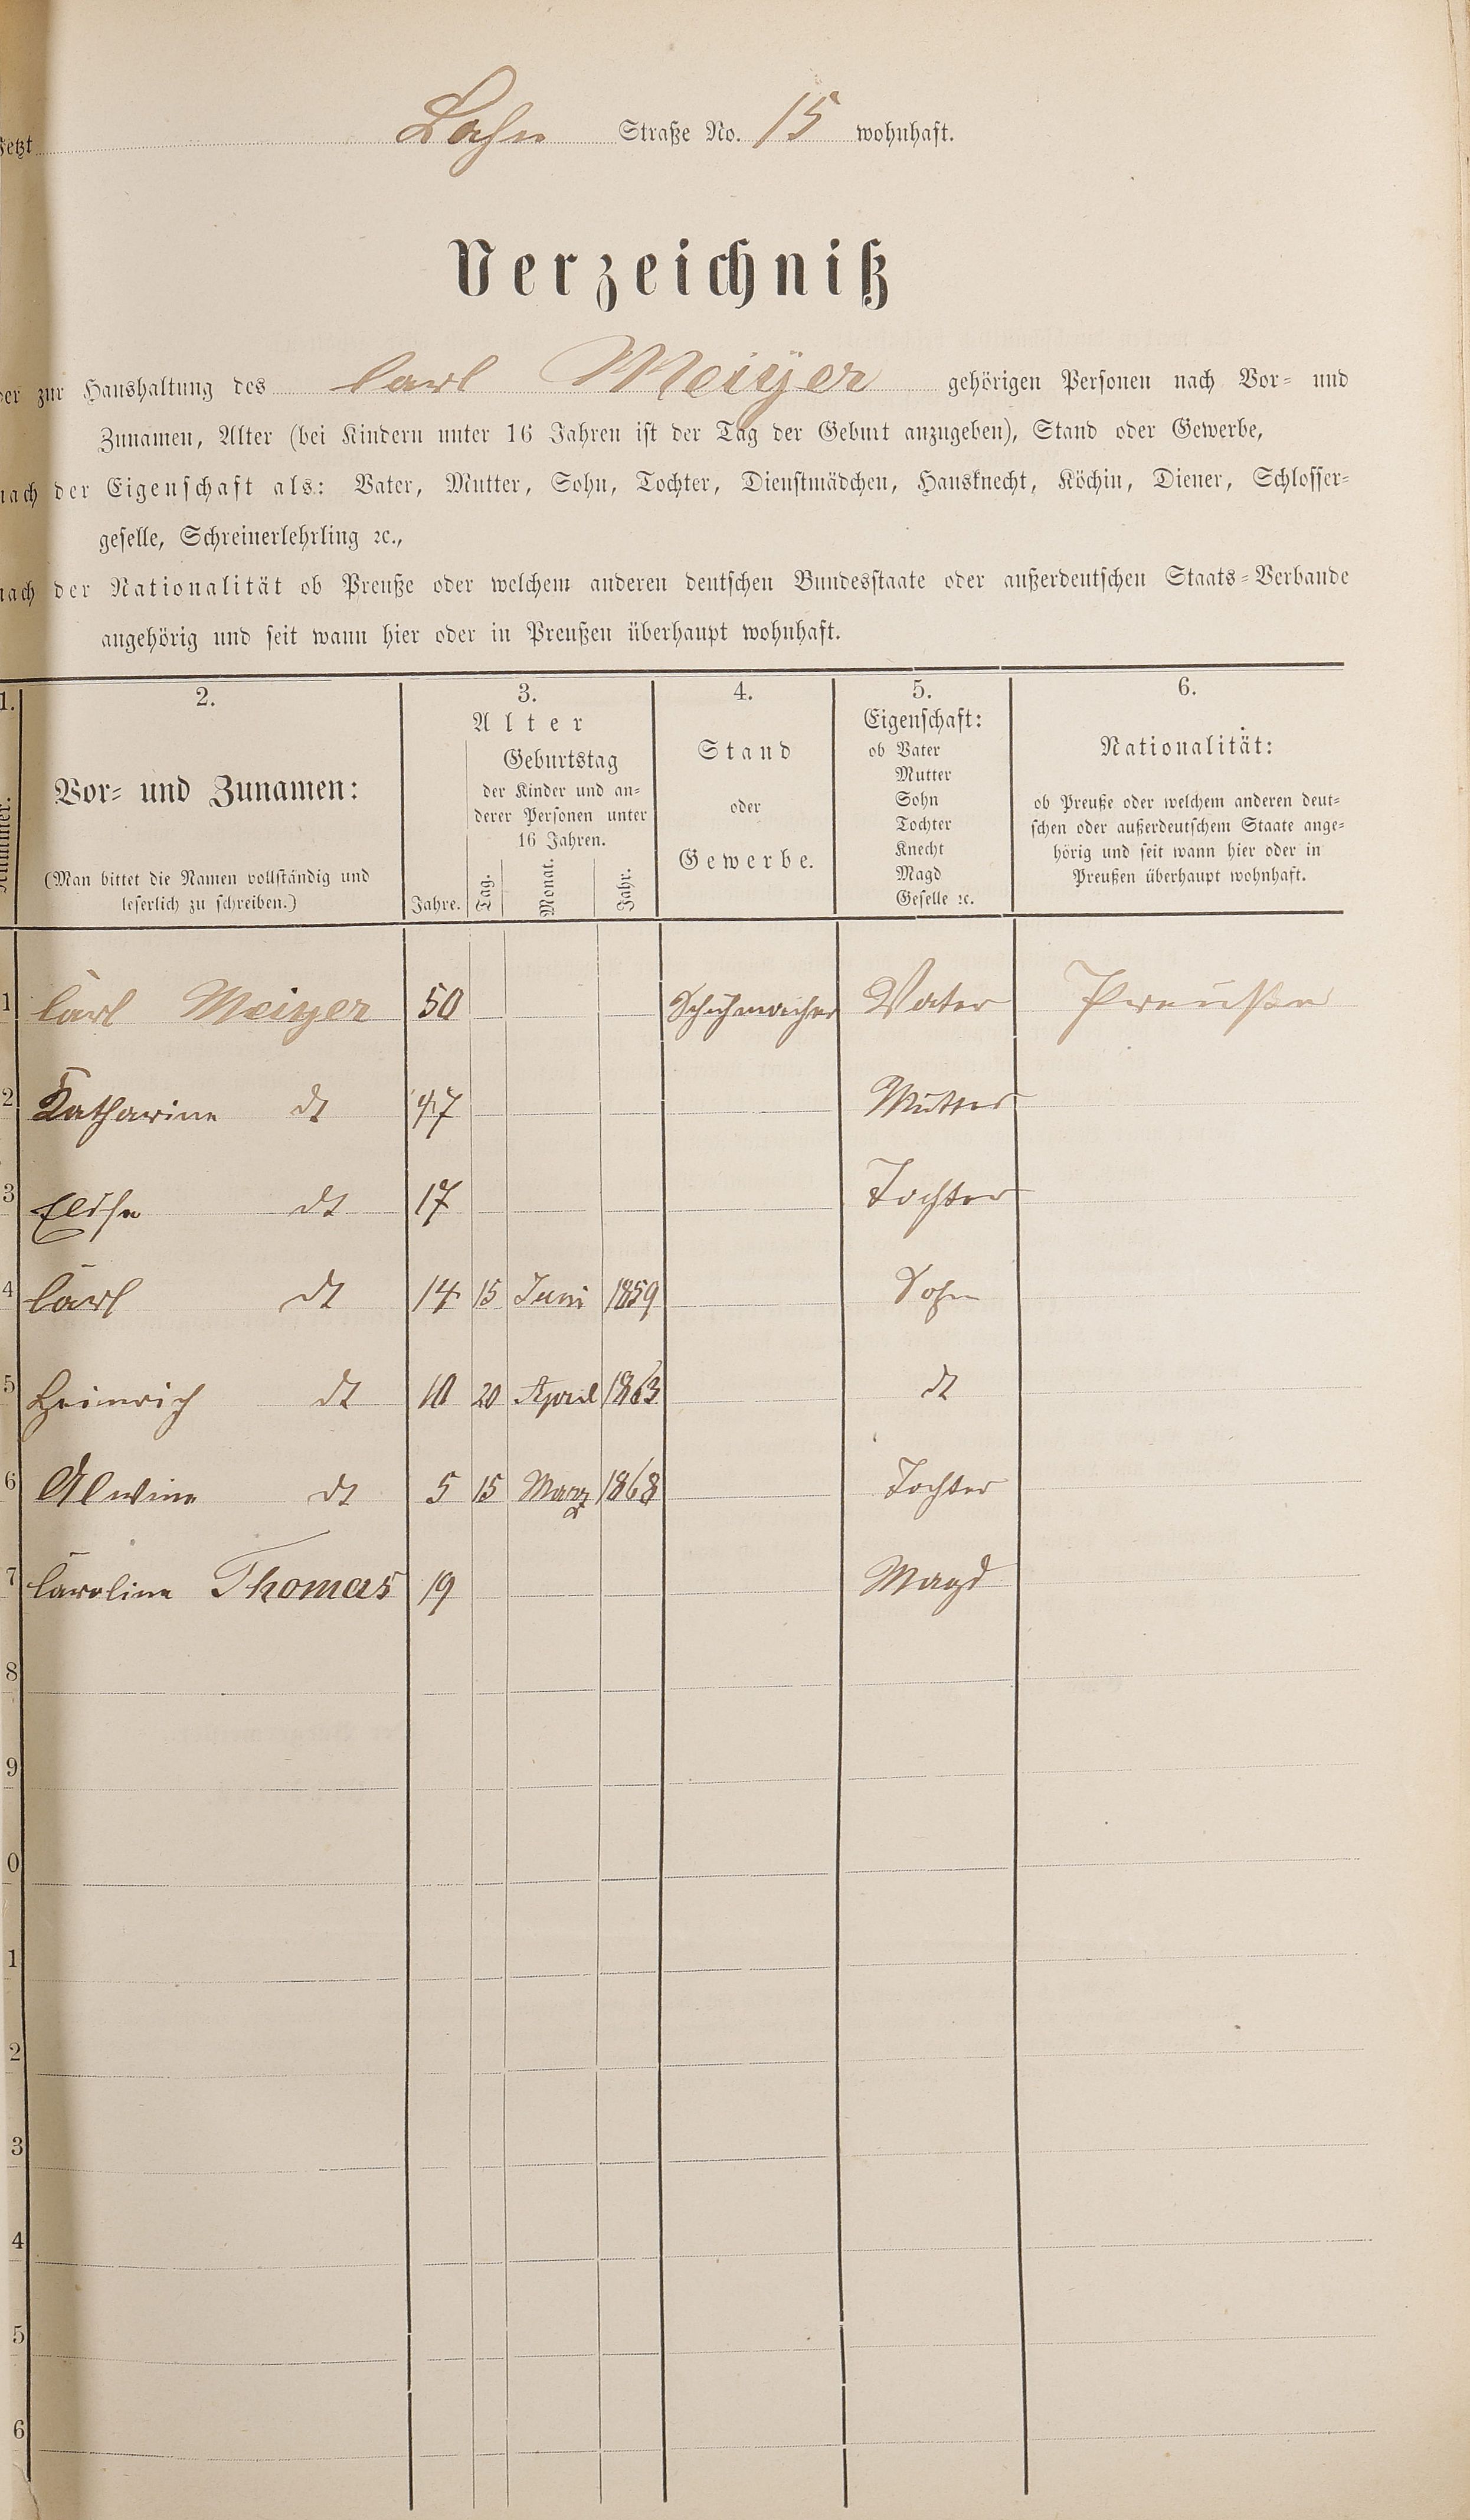 Jetzt Lahn Straße No. 15 wohnhaft.
Verzeichniß
der zur Haushaltung des Carl Meiÿer gehörigen Personen nach Vor- und
Zunamen, Alter (bei Kindern unter 16 Jahren ist der Tag der Geburt anzugeben), Stand oder Gewerbe,
nach der Eigenschaft als: Vater, Mutter, Sohn, Tochter, Dienstmädchen, Hausknecht, Köchin, Diener, Schlosser-
geselle, Schreinerlehrling ꝛc.,
nach der Nationalität ob Preuße oder welchem anderen deutschen Bundesstaate oder außerdeutschen Staats-Verbande
angehörig und seit wann hier oder in Preußen überhaupt wohnhaft.
1. 2. 3. 4. 5. 6.
Nummer.
Vor- und Zunamen:
(Man bittet die Namen vollständig und
leserlich zu schreiben.)
Alter
Geburtstag
der Kinder und an-
derer Personen unter
16 Jahren.
Jahre. Tag. Monat. Jahr.
Stand
oder
Gewerbe.
Eigenschaft:
ob Vater
Mutter
Sohn
Tochter
Knecht
Magd
Geselle ꝛc.
Nationalität:
ob Preuße oder welchem anderen deut-
schen oder außerdeutschem Staate ange-
hörig und seit wann hier oder in
Preußen überhaupt wohnhaft.
1 Carl Meiyer 50 Schuhmacher Vater Preuße
2 Katharine dt 47 Mutter
3 Elise dt 17 Tochter
4 Carl dt 14 15 Juni 1859 Sohn
5 Heinrich dt 10 20 April 1863 dt
6 Alwine dt 5 15 Marz 1868 Tochter
7 Caroline Thomas 19 Magd
8
9
0
1
2
3
4
5
6